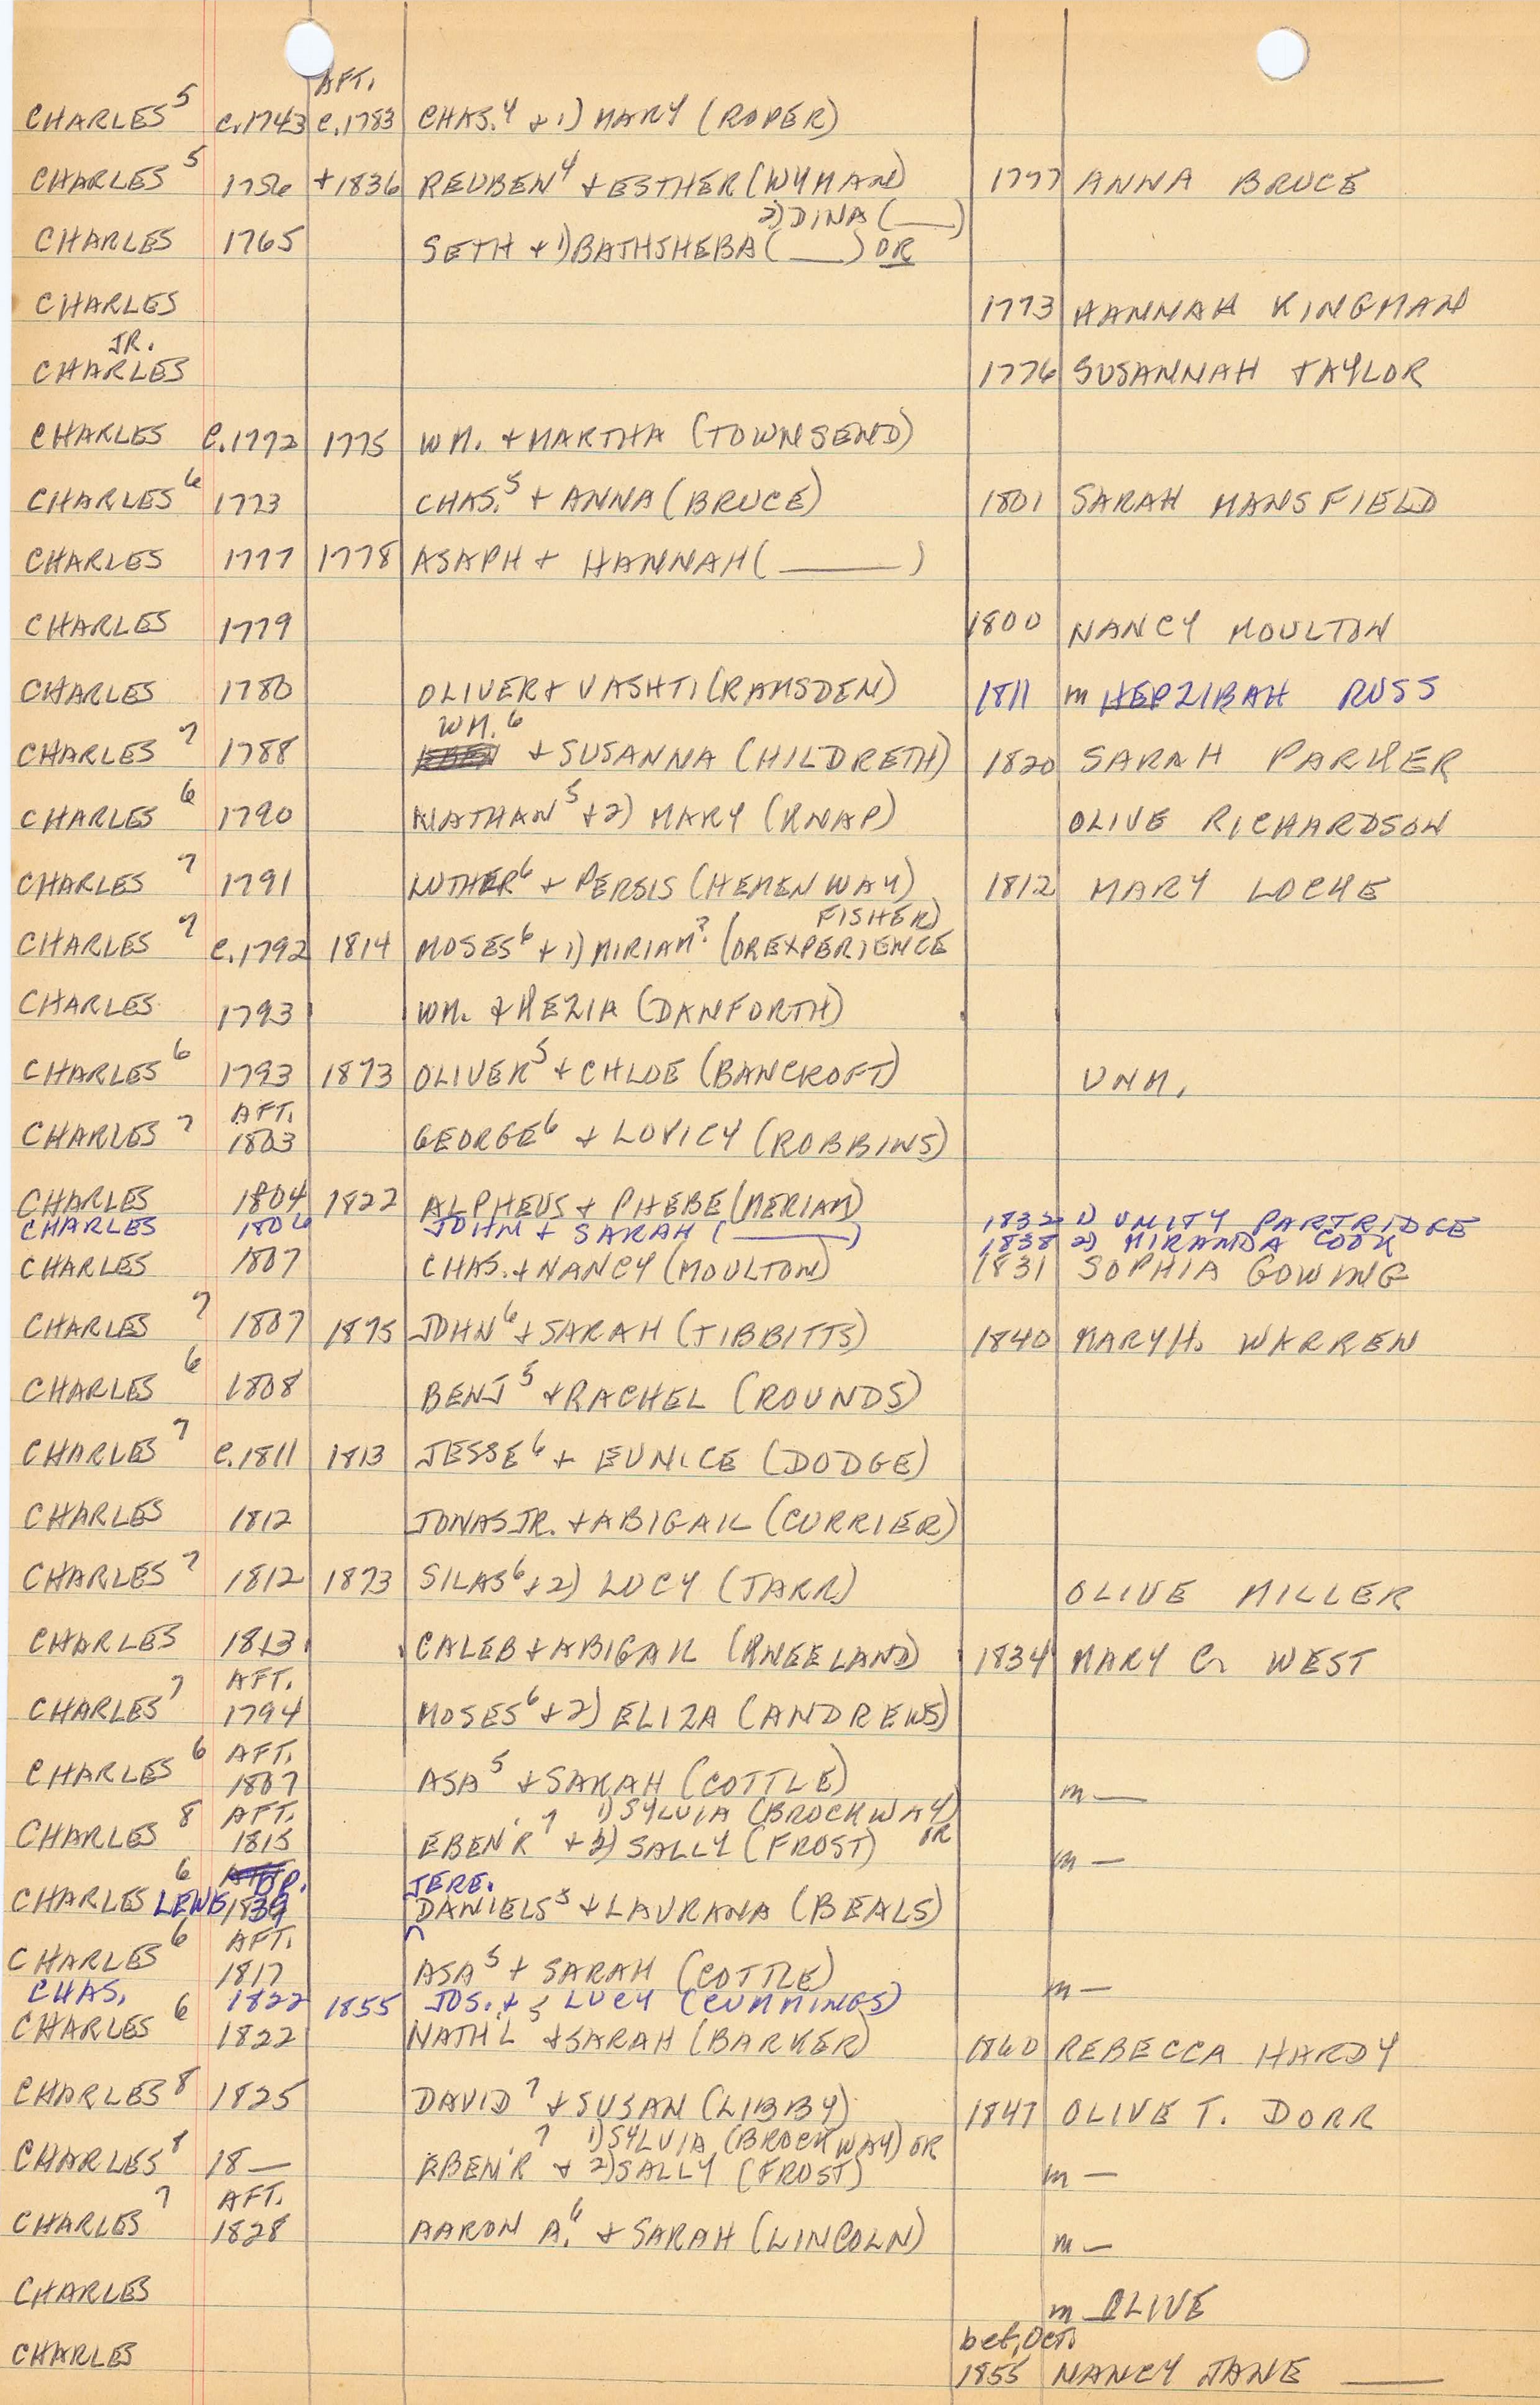 AFT.
CHARLES⁵ C.1743 C.1783 CHAS.⁴ + 1) MARY (ROPER)
CHARLES⁵ 1756 +1836 REUBEN⁴ + ESTHER (WYMAN) 1777 ANNA BRUCE
2) DINA (___)
CHARLES 1765 SETH + 1) BATHSHEBA (___) OR
CHARLES 1773 HANNAH KINGMAN
JR.
CHARLES 1776 SUSANNAH TAYLOR
CHARLES C.1772 1775 WM. + MARTHA (TOWNSEND)
CHARLES⁶ 1773 CHAS.⁵ + ANNA (BRUCE) 1801 SARAH MANSFIELD
CHARLES 1777 1778 ASAPH + HANNAH (______)
CHARLES 1779 1800 NANCY MOULTON
CHARLES 1780 OLIVER + VASHTI (RAMSDEN) 1811 m HEPZIBAH RUSS
WM.⁶
CHARLES⁷ 1788 + SUSANNA (HILDRETH) 1820 SARAH PARKER
CHARLES⁶ 1790 NATHAN⁵ + 2) MARY (KNAP) OLIVE RICHARDSON
CHARLES⁷ 1791 LUTHER⁶ + PERSIS (HEMENWAY) 1812 MARY LOCKE
FISHER)
CHARLES⁷ C.1792 1814 MOSES⁶ + 1) MIRIAM? (OR EXPERIENCE
CHARLES 1793 WM. + KEZIA (DANFORTH)
CHARLES⁶ 1793 1873 OLIVER⁵ + CHLOE (BANCROFT) UNM.
AFT.
CHARLES⁷ 1803 GEORGE⁶ + LOVICY (ROBBINS)
CHARLES 1804 1822 ALPHEUS + PHEBE (MERIAM)
CHARLES 1806 JOHN + SARAH (______) 1832 1) UNITY PARTRIDGE
1838 2) MIRANDA COOK
CHARLES 1807 CHAS. + NANCY (MOULTON) 1831 SOPHIA GOWING
CHARLES⁷ 1807 1875 JOHN⁶ + SARAH (TIBBITTS) 1840 MARY H. WARREN
CHARLES⁶ 1808 BENJ⁵ + RACHEL (ROUNDS)
CHARLES⁷ C.1811 1813 JESSE⁶ + EUNICE (DODGE)
CHARLES 1812 JONAS JR. + ABIGAIL (CURRIER)
CHARLES⁷ 1812 1873 SILAS⁶ + 2) LUCY (TARR) OLIVE MILLER
CHARLES 1813 CALEB + ABIGAIL (KNEELAND) 1834 MARY C. WEST
AFT.
CHARLES⁷ 1794 MOSES⁶ + 2) ELIZA (ANDREWS)
AFT.
CHARLES⁶ 1807 ASA⁵ + SARAH (COTTLE) m —
AFT. 1) SYLVIA (BROCKWAY)
CHARLES⁸ 1815 EBEN'R⁷ + 2) SALLY (FROST) OR m —
JERE.
CHARLES LEWIS⁶ 1839 DANIELS⁵ + LAURANA (BEALS)
AFT.
CHARLES⁶ 1817 ASA⁵ + SARAH (COTTLE) m —
CHAS. 1822 1855 JOS. + LUCY (CUMMINGS)
CHARLES⁶ 1822 NATH'L⁵ + SARAH (BARKER) 1860 REBECCA HARDY
CHARLES⁸ 1825 DAVID⁷ + SUSAN (LIBBY) 1847 OLIVE T. DORR
1) SYLVIA (BROCKWAY) OR
CHARLES⁸ 18— EBEN'R⁷ + 2) SALLY (FROST) m —
AFT.
CHARLES⁷ 1828 AARON A.⁶ + SARAH (LINCOLN) m —
CHARLES m OLIVE
bef. Oct.
CHARLES 1855 NANCY JANE ______